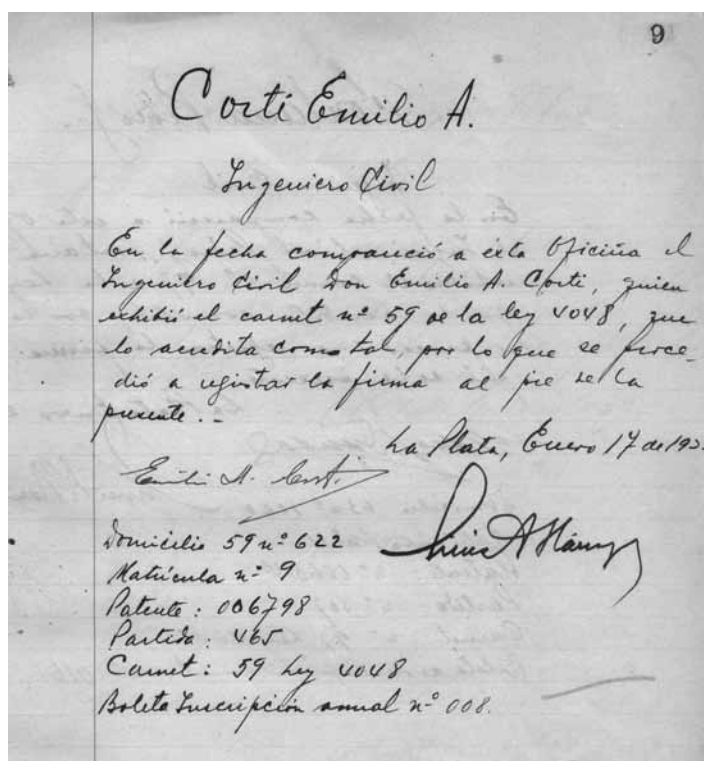 9
Corti Emilio A.
Ingeniero Civil
En la fecha compareció a esta Oficina el
Ingeniero Civil Don Emilio A. Corti, quien
exhibió el carnet nº 59 de la ley 4048, que
lo acredita como tal, por lo que se proce-
dió a registrar la firma al pie de la
presente.-
La Plata, Enero 17 de 193
Emilio A. Corti
Luis A.
Domicilio 59 nº 622
Matrícula nº 9
Patente: 006798
Partida: 465
Carnet: 59 Ley 4048
Boleta Inscripción anual nº 008.